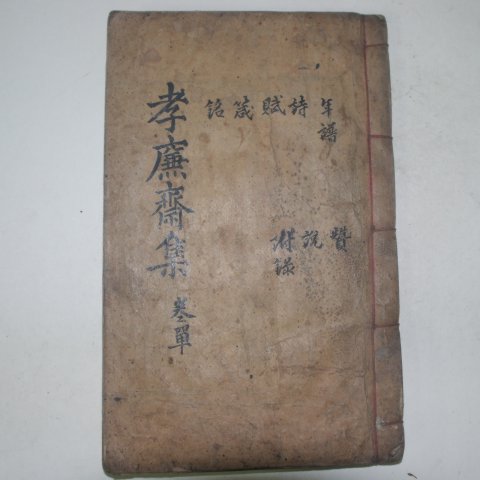 孝廉齋集 卷單
年譜
詩
賦
箴
銘
贊
說
襍錄